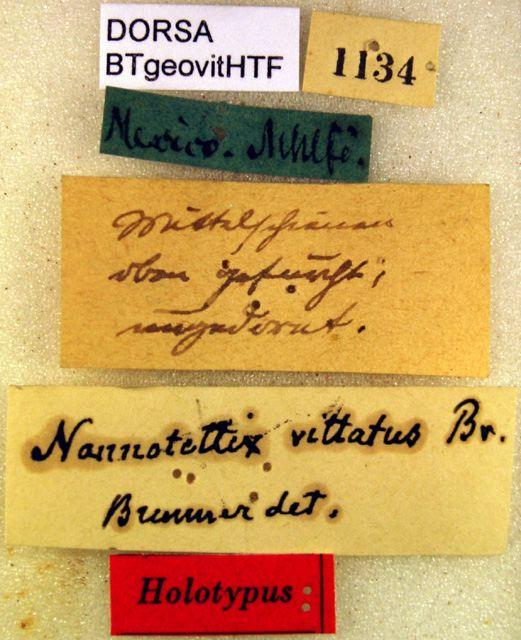 DORSA
BTgeovitHTF
1134
Mexico.
Mittelschienen
oben gefurcht,
ungedornt.
Nannotettix vittatus Br.
Brunner det.
Holotypus :